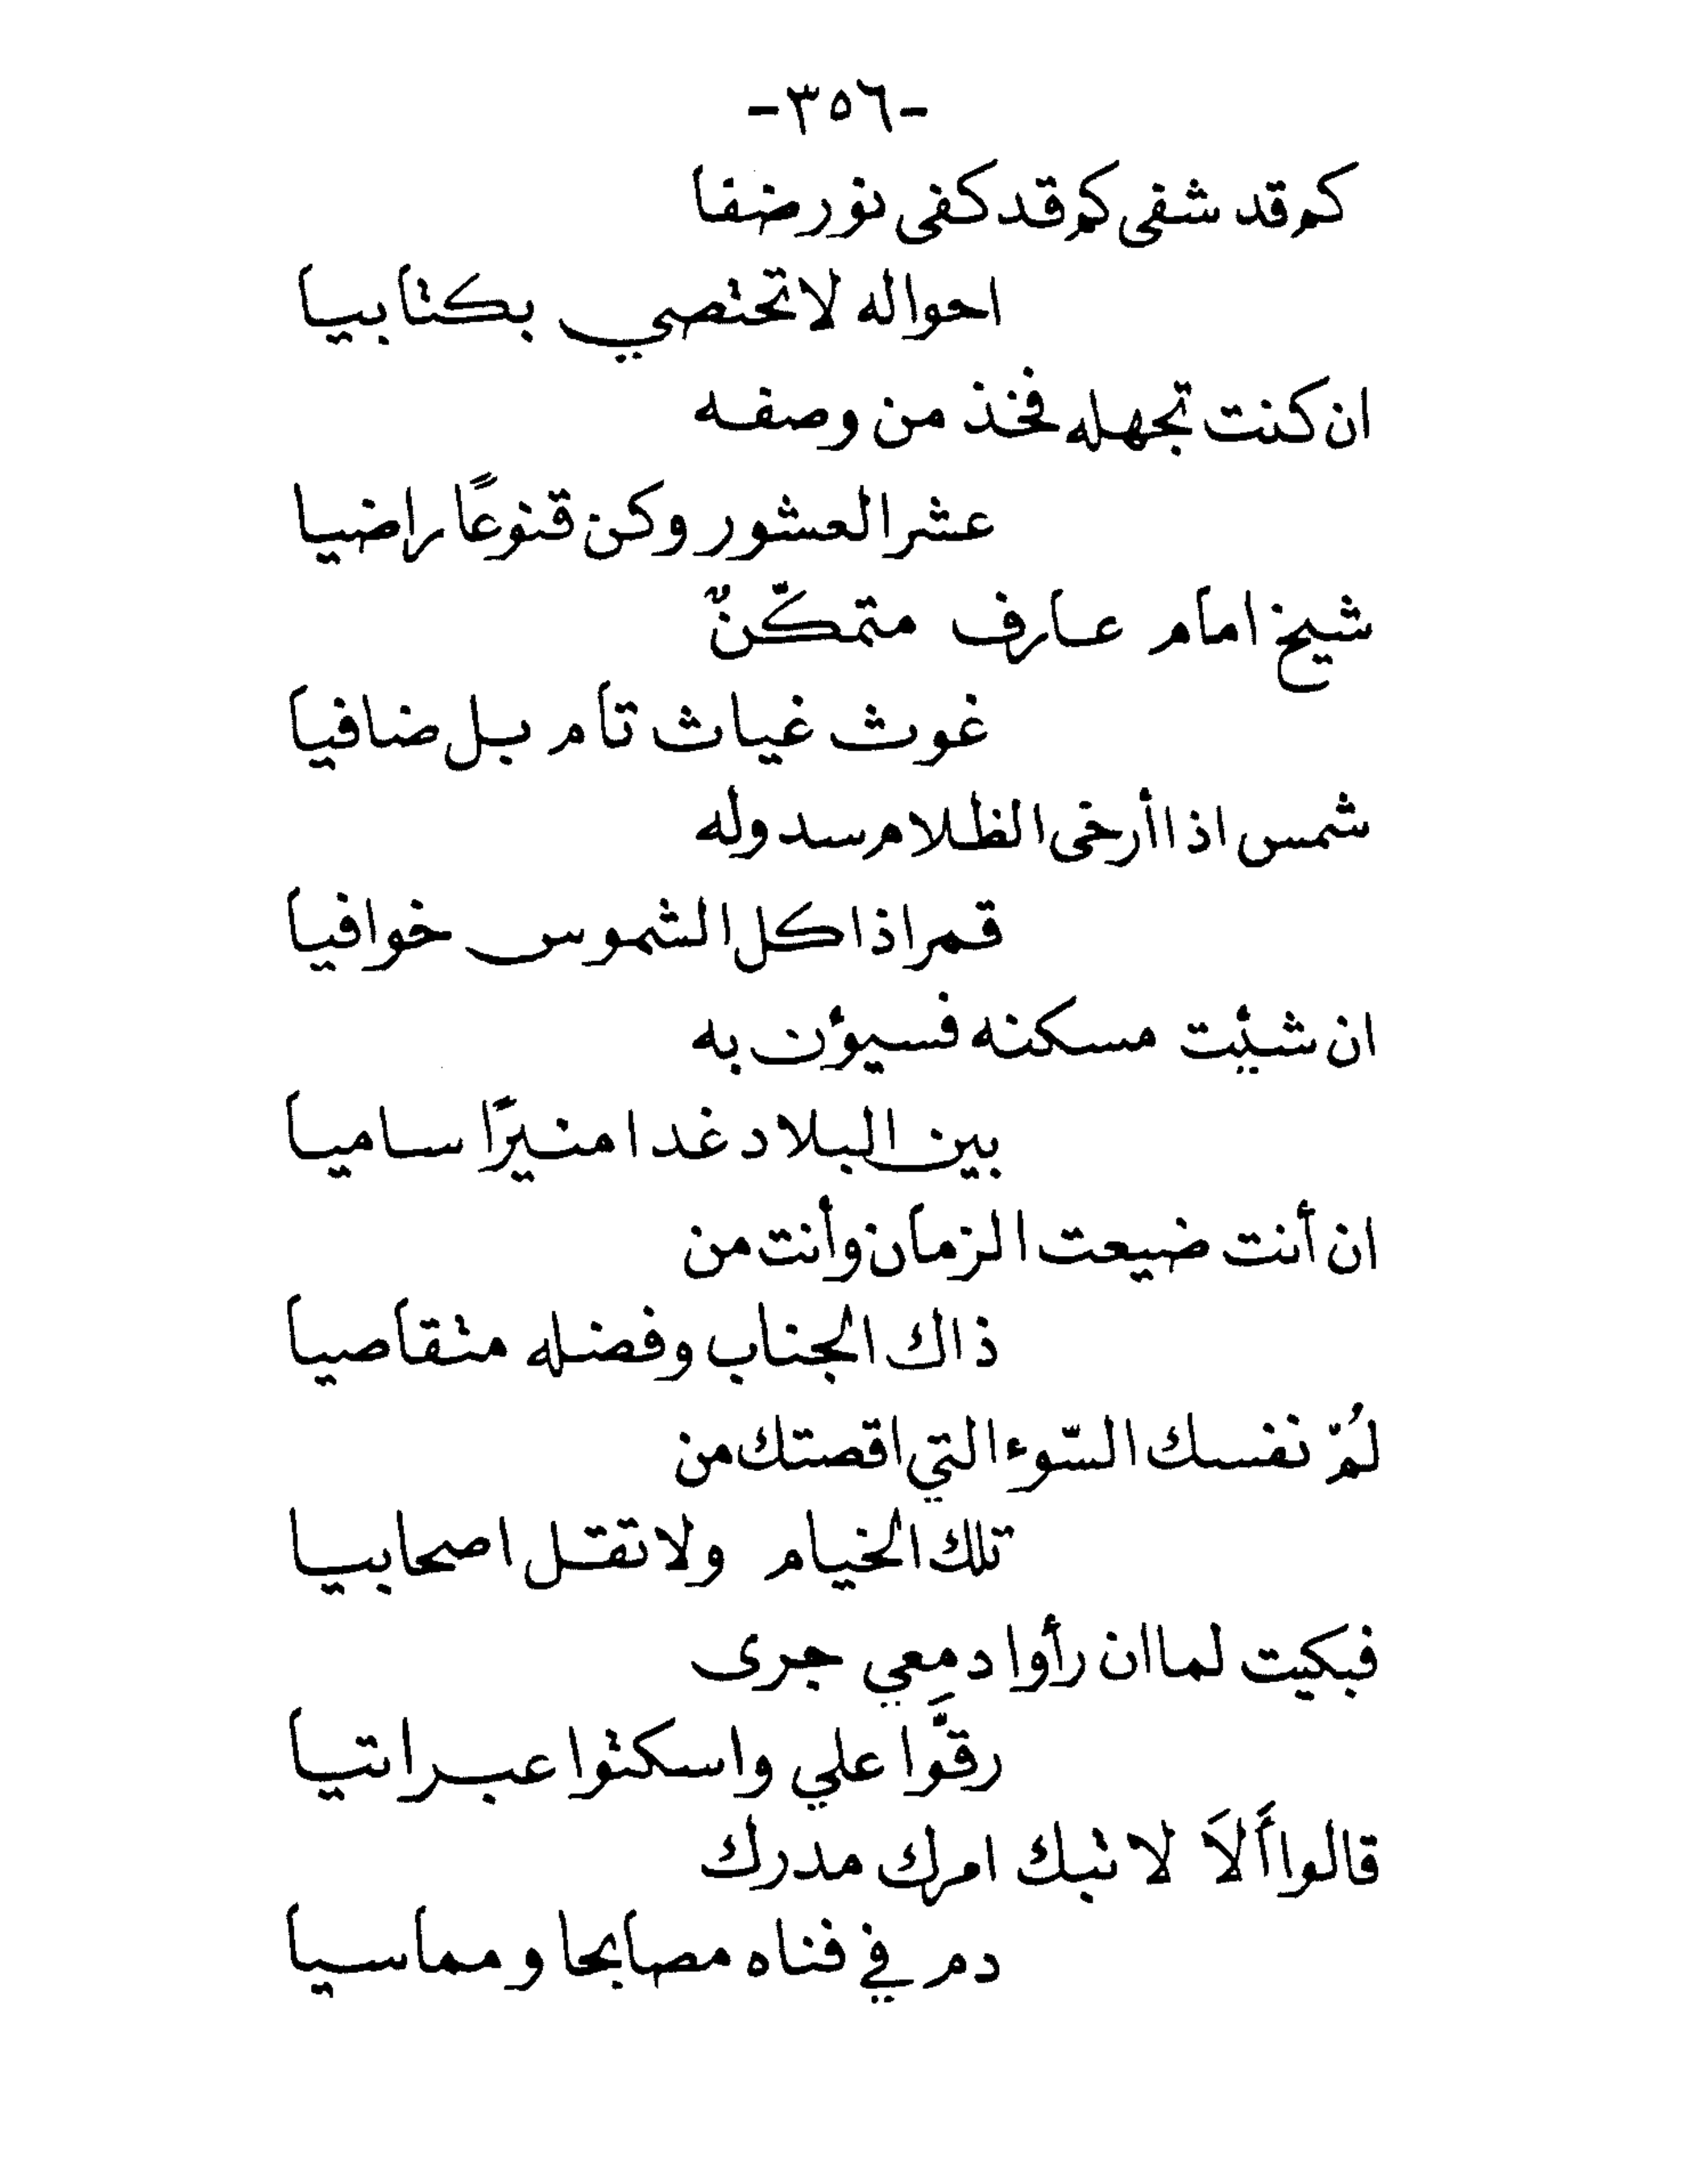 -٣٥٦-
كم قد شفى كم قد كفى نور ضفا
احواله لا تحتصي بكتابيا
ان كنت تجهله فخذ من وصفه
عشر العشور وكن قنوعًا راضيا
شيخ امام عارف متمكّنٌ
غوث غياث تام بل ضافيا
شمس اذا أرخى الظلام سدوله
قمر اذا كل الشموس خوافيا
ان شئت مسكنه فسيؤن به
بين البلاد غدا منيرًا ساميا
ان أنت ضيعت الزمان وأنت من
ذاك الجناب وفضله متقاصيا
لُمّ نفسك السّوء التي اقصتك من
تلك الخيام ولا تقل اصحابيا
فبكيت لما ان رأوا دمعِي جرى
رقَّوا علي واسكتوا عبراتيا
قالوا أَلاَ لا تبك امرك مدرك
دم في فناه مصابحا ومماسيا